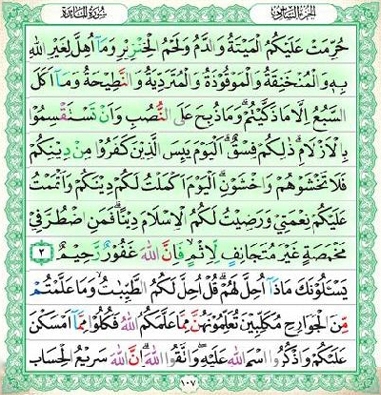 الجزء السادس سورة المائدة
حُرِّمَتْ عَلَيْكُمُ الْمَيْتَةُ وَالدَّمُ وَلَحْمُ الْخِنْزِيرِ وَمَا أُهِلَّ لِغَيْرِ اللَّهِ
بِهِ وَالْمُنْخَنِقَةُ وَالْمَوْقُوذَةُ وَالْمُتَرَدِّيَةُ وَالنَّطِيحَةُ وَمَا أَكَلَ
السَّبُعُ إِلَّا مَا ذَكَّيْتُمْ وَمَا ذُبِحَ عَلَى النُّصُبِ وَأَنْ تَسْتَقْسِمُوا
بِالْأَزْلَامِ ذَلِكُمْ فِسْقٌ الْيَوْمَ يَئِسَ الَّذِينَ كَفَرُوا مِنْ دِينِكُمْ
فَلَا تَخْشَوْهُمْ وَاخْشَوْنِ الْيَوْمَ أَكْمَلْتُ لَكُمْ دِينَكُمْ وَأَتْمَمْتُ
عَلَيْكُمْ نِعْمَتِي وَرَضِيتُ لَكُمُ الْإِسْلَامَ دِينًا فَمَنِ اضْطُرَّ فِي
مَخْمَصَةٍ غَيْرَ مُتَجَانِفٍ لِإِثْمٍ فَإِنَّ اللَّهَ غَفُورٌ رَحِيمٌ ٣
يَسْأَلُونَكَ مَاذَا أُحِلَّ لَهُمْ قُلْ أُحِلَّ لَكُمُ الطَّيِّبَاتُ وَمَا عَلَّمْتُمْ
مِنَ الْجَوَارِحِ مُكَلِّبِينَ تُعَلِّمُونَهُنَّ مِمَّا عَلَّمَكُمُ اللَّهُ فَكُلُوا مِمَّا أَمْسَكْنَ
عَلَيْكُمْ وَاذْكُرُوا اسْمَ اللَّهِ عَلَيْهِ وَاتَّقُوا اللَّهَ إِنَّ اللَّهَ سَرِيعُ الْحِسَابِ
١٠٧